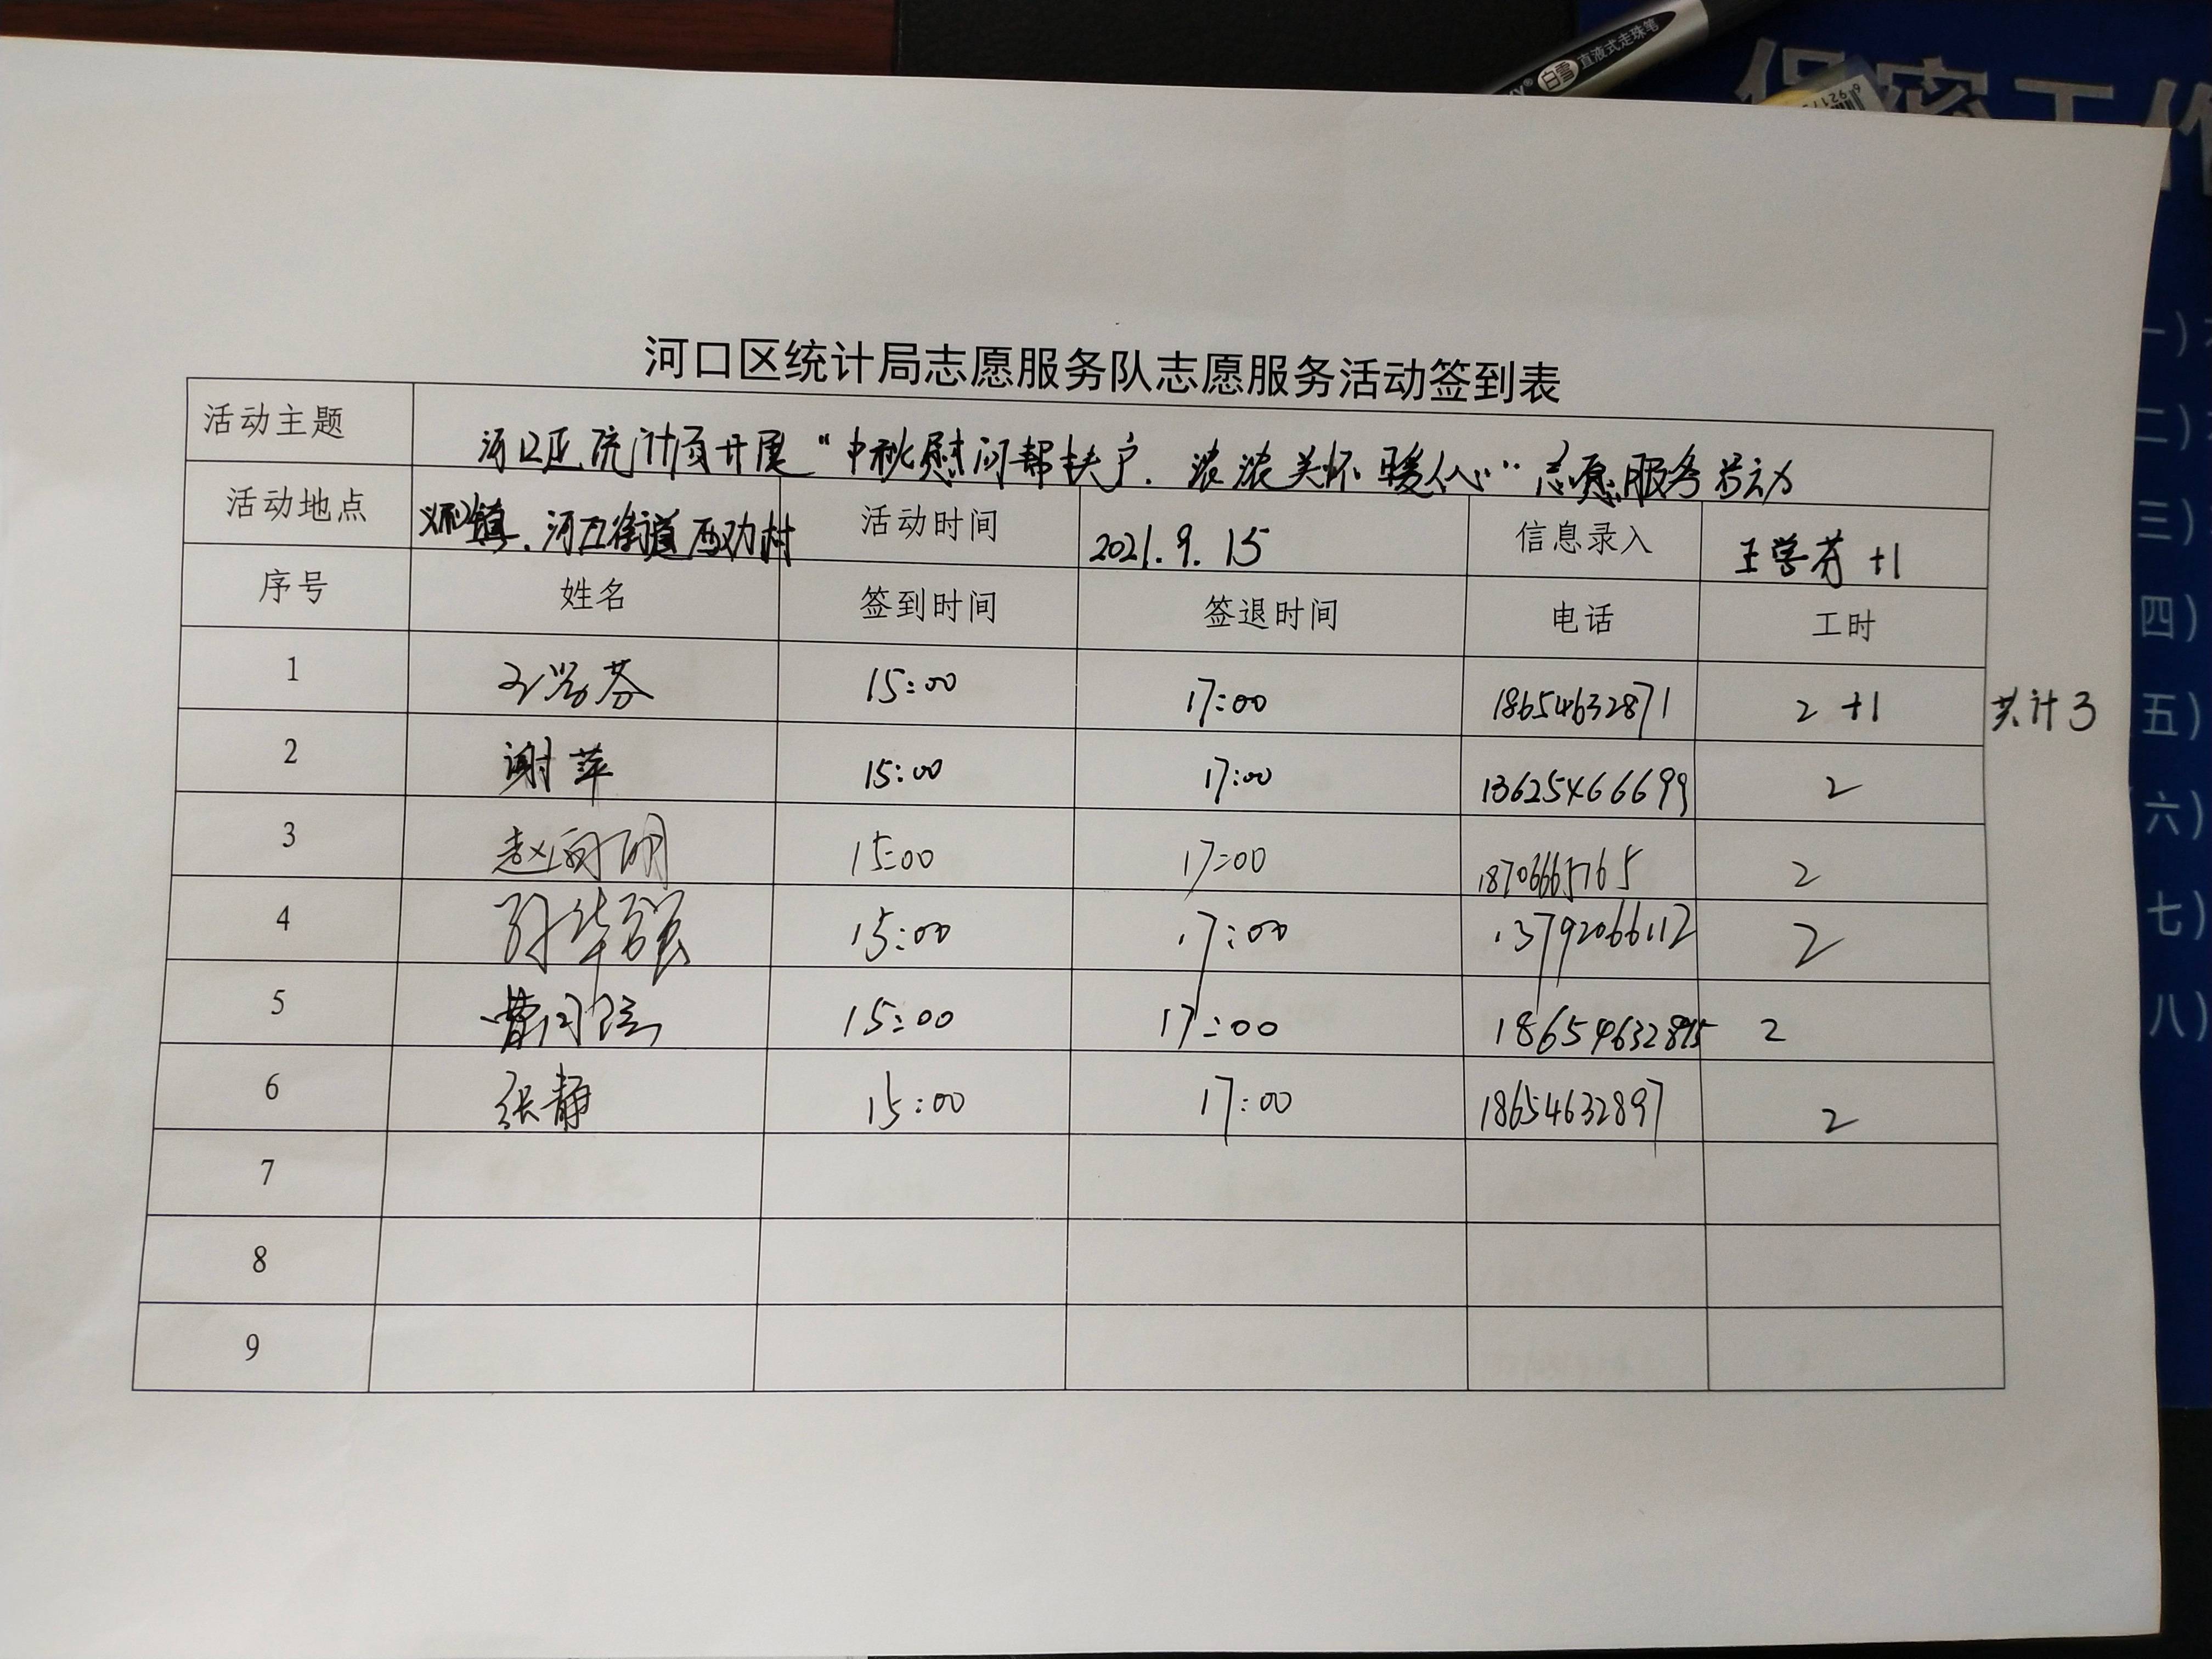 白雪 直液式走珠笔
保密工作
河口区统计局志愿服务队志愿服务活动签到表
活动主题 河口区统计局开展“中秋慰问帮扶户.浓浓关怀暖人心”志愿服务活动
活动地点 镇.河口街道 村 活动时间 2021.9.15 信息录入 王学芬 +1
序号 姓名 签到时间 签退时间 电话 工时
1 王学芬 15:00 17:00 18654632871 2 +1 共计3
2 谢萍 15:00 17:00 13625466699 2
3 赵 明 15:00 17:00 18706665765 2
4 15:00 17:00 13792066112 2
5 15:00 17:00 2
6 张静 15:00 17:00 18654632897 2
7
8
9
一)
二)
三)
四)
五)
六)
七)
八)